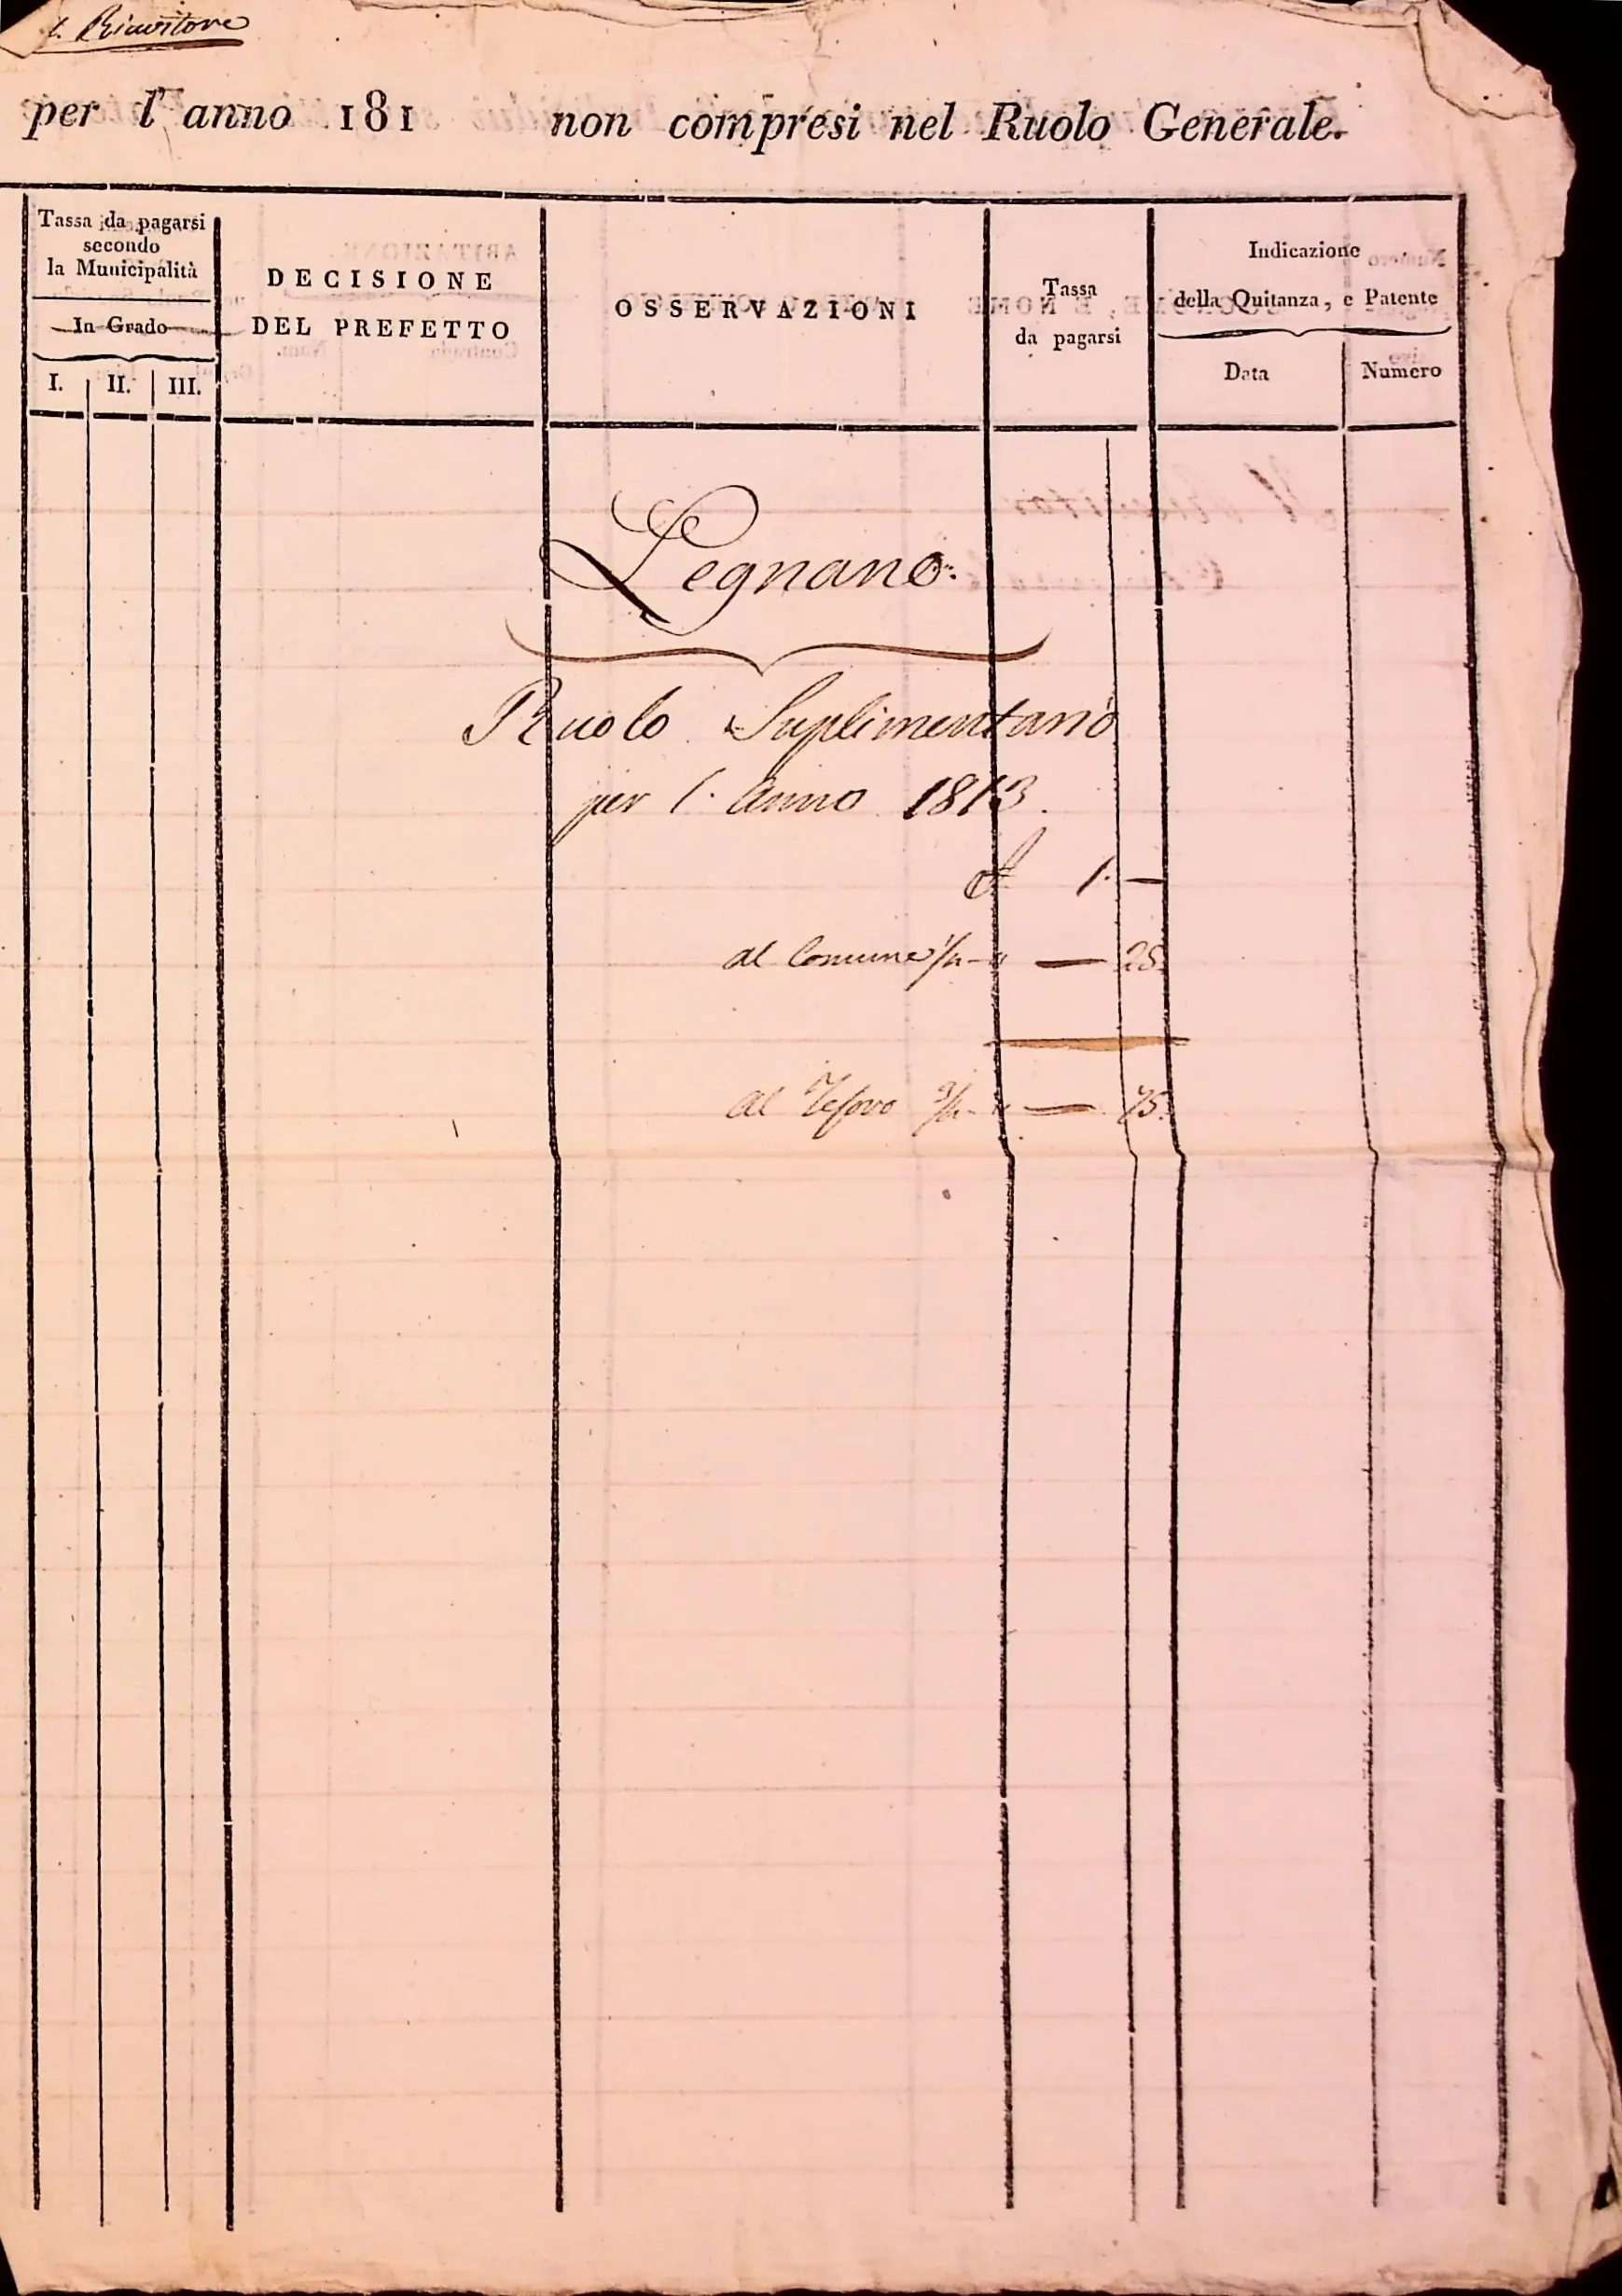 l. Ricevitore
per l'anno 181 non compresi nel Ruolo Generale.
Tassa da pagarsi
secondo
la Municipalità
In Grado
I. II. III.
DECISIONE
DEL PREFETTO
OSSERVAZIONI
Tassa
da pagarsi
Indicazione
della Quitanza, e Patente
Data Numero
Legnano.
Ruolo Suplimentario
per l'anno 1813.
1. —
al Comune 1/4 — " — 25.
al Tesoro 3/4 — " — 75.